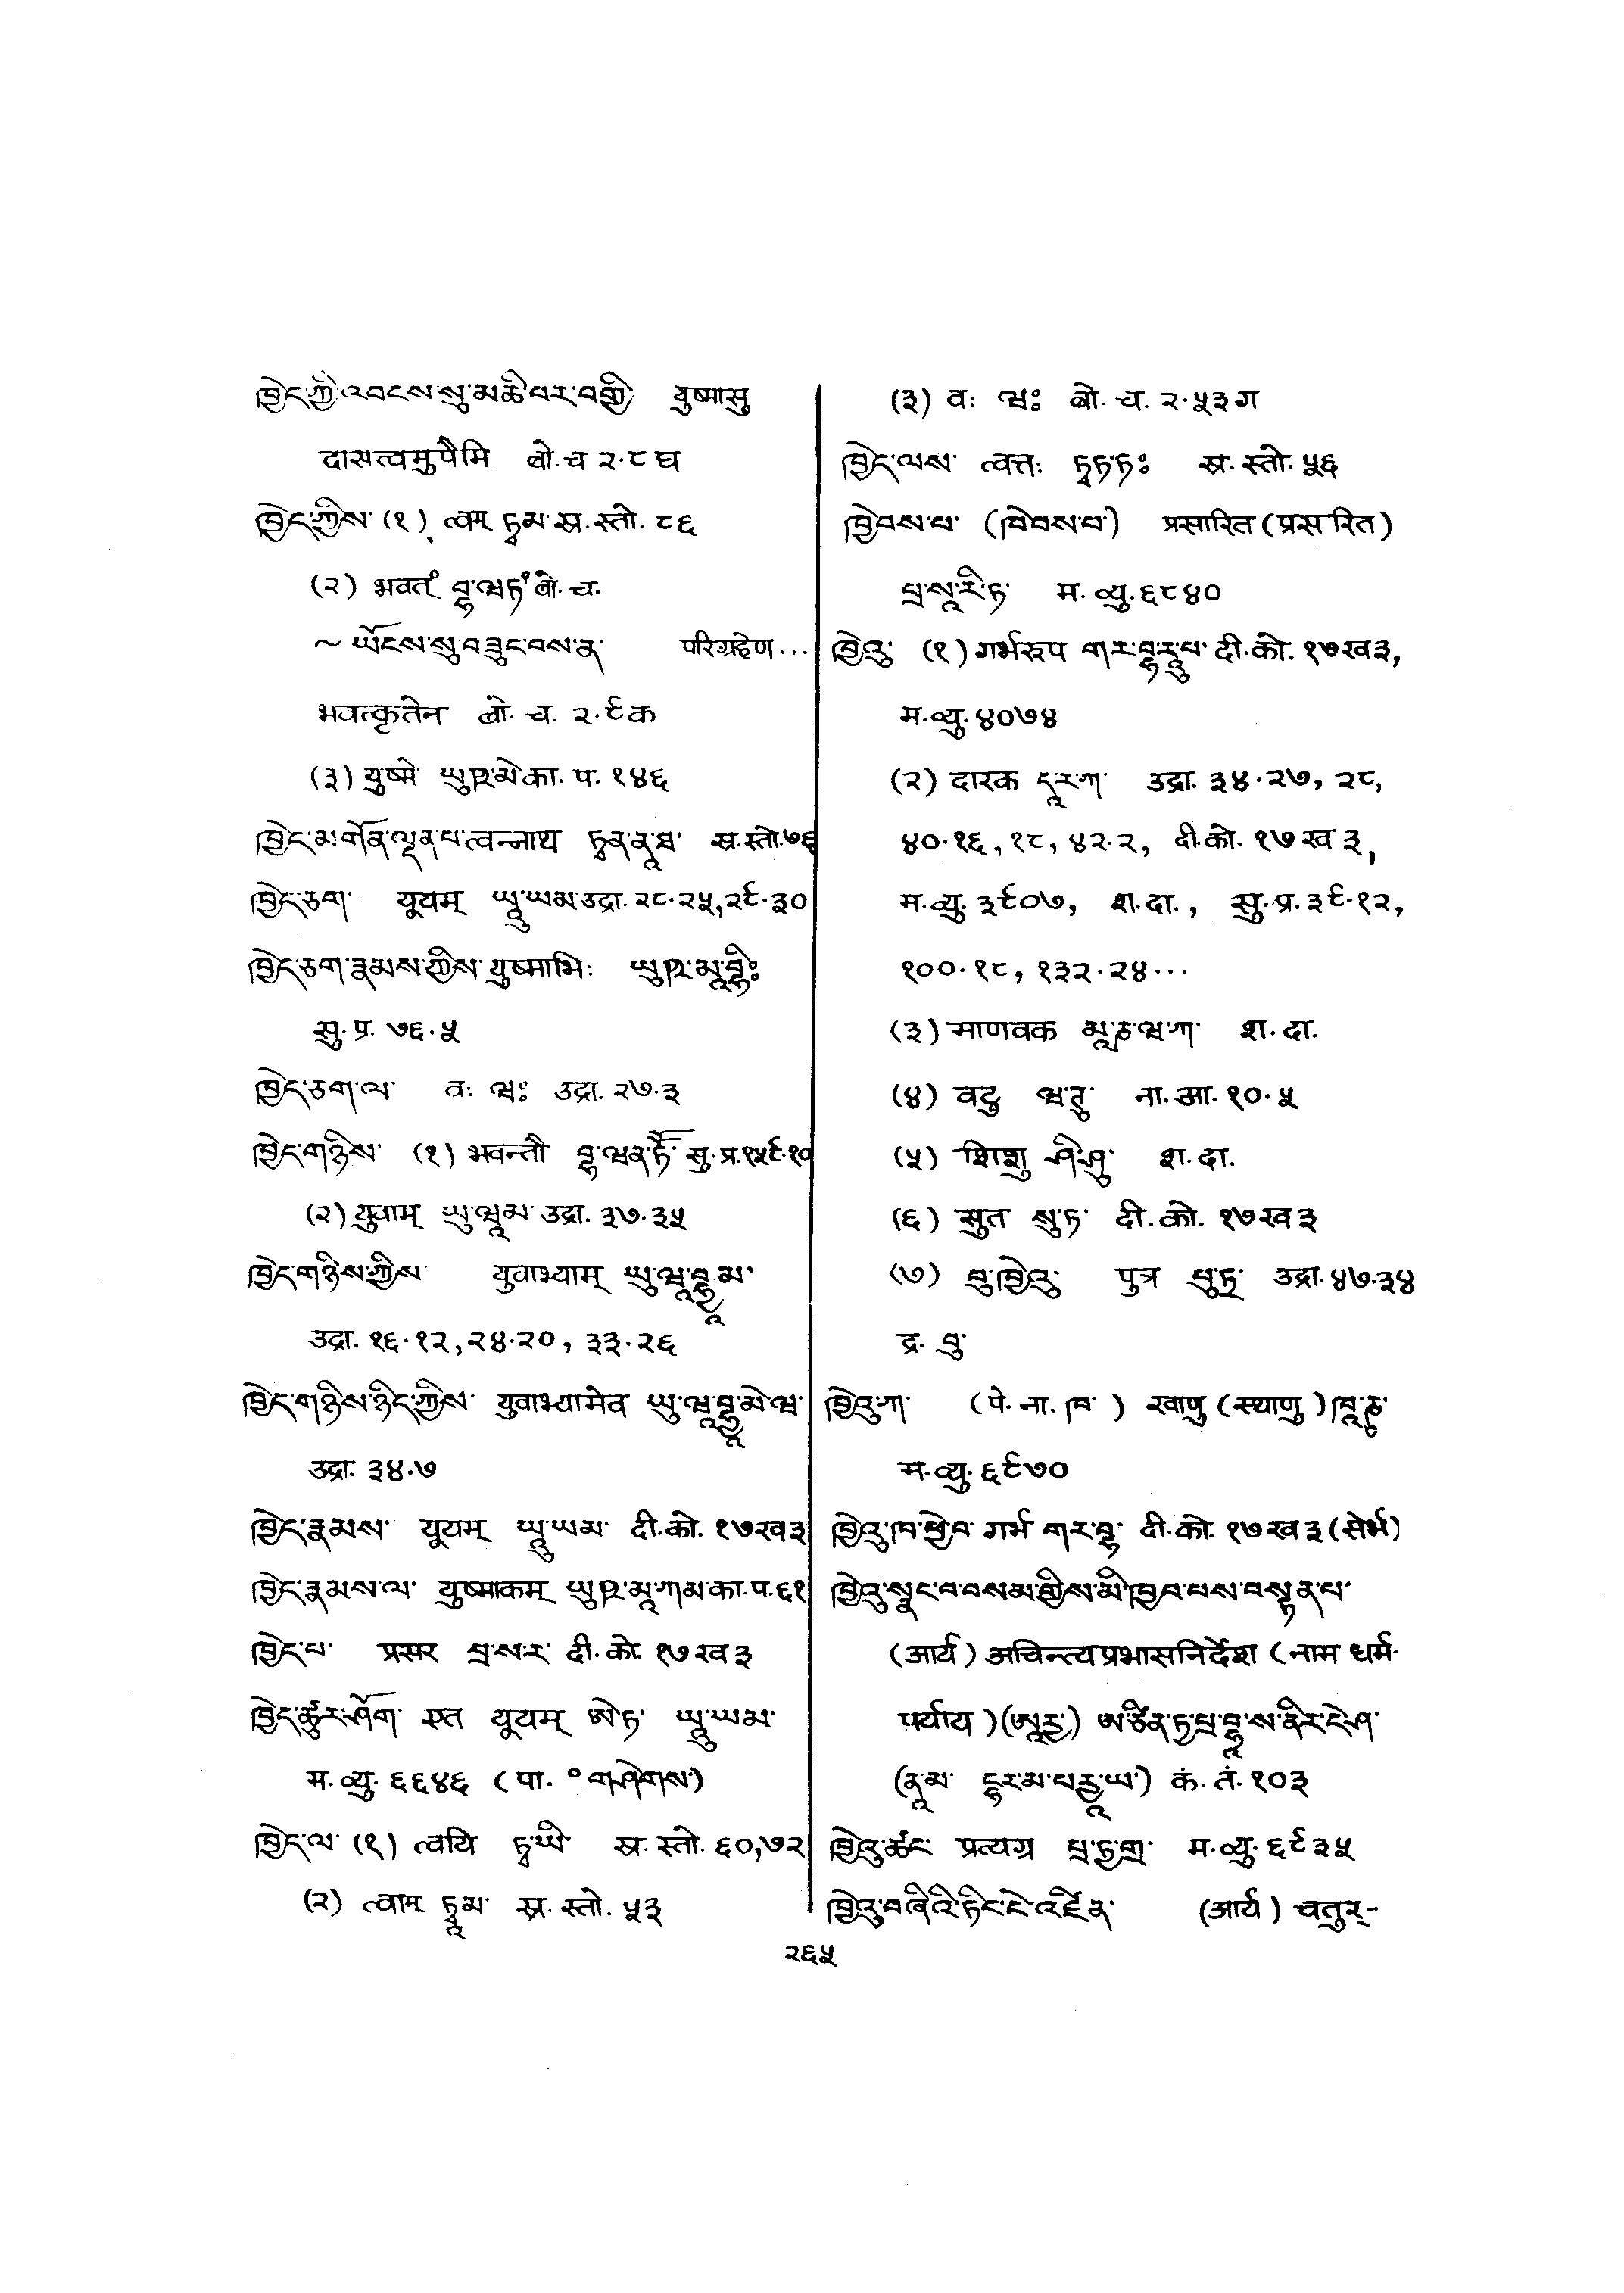 ཁྱེད་ཀྱི་འབངས་སུ་མཆི་བར་བགྱི युष्मासु
दासत्वमुपैमि बो. च २.८ घ
ཁྱེད་ཀྱིས་ (१) त्वम् ཏྭམ་ स्र. स्तो. ८६
(२) भवतं བྷ་ཝ་ཏཾ बो. च.
~ ཡོངས་སུ་བཟུང་བས་ན་ परिग्रहेण...
भवत्कृतेन बो. च. २.९क
(३) युष्मे ཡུཥྨེ का. प. १४६
ཁྱེད་མགོན་ལྡན་པ་ त्वन्नाथ ཏྭན་ནཱ་ཐ་ स्र. स्तो. ७६
ཁྱེད་ཅག་ यूयम् ཡཱུ་ཡམ་ उद्रा. २८.२५, २९.३०
ཁྱེད་ཅག་རྣམས་ཀྱིས་ युष्माभिः ཡུཥྨཱ་བྷིཿ
सु. प्र. ७६.५
ཁྱེད་ཅག་ལ་ वः ཝཿ उद्रा. २७.३
ཁྱེད་གཉིས་ (१) भवन्तौ བྷ་ཝན་ཏཽ་ सु. प्र. १५९.१०
(२) युवाम् ཡུ་ཝཱམ་ उद्रा. ३७.३५
ཁྱེད་གཉིས་ཀྱིས་ युवाभ्याम् ཡུ་ཝཱ་བྷྱཱམ་
उद्रा. १६.१२, २४.२०, ३३.२६
ཁྱེད་གཉིས་ཉིད་ཀྱིས་ युवाभ्यामेव ཡུ་ཝཱ་བྷྱཱ་མེ་ཝ་
उद्रा. ३४.७
ཁྱེད་རྣམས་ यूयम् ཡཱུ་ཡམ་ दी. को. १७ख३
ཁྱེད་རྣམས་ལ་ युष्माकम् ཡུཥྨཱ་ཀམ་ का. प. ६१
ཁྱེད་པ་ प्रसर པྲ་ས་ར་ दी. को १७ख३
ཁྱེད་ཚུར་ཤོག་ एत यूयम् ཨེ་ཏ་ ཡཱུ་ཡམ་
म. व्यु. ६६४६ (पा. ॰གཤེགས་)
ཁྱེད་ལ་ (१) त्वयि ཏྭ་ཡི་ स्र. स्तो. ६०, ७२
(२) त्वाम् ཏྭཱམ་ स्र. स्तो. ५३
(३) वः ཝཿ बो. च. २.५३ग
ཁྱེད་ལས་ त्वत्तः ཏྭཏ་ཏཿ स्र. स्तो. ५६
ཁྱེབས་པ་ (ཁེབས་པ་) प्रसारित (प्रसरित)
པྲ་སཱ་རི་ཏ་ म. व्यु. ६८४०
ཁྱེའུ་ (१) गर्भरूप གར་བྷ་རཱུ་པ་ दी. को. १७ख३,
म. व्यु. ४०७४
(२) दारक དཱ་ར་ཀ་ उद्रा. ३४.२७, २८,
४०.१६, १८, ४२.२, दी. को. १७ख३,
म. व्यु. ३९०७, श. दा., सु. प्र. ३९.१२,
१००.१८, १३२.२४...
(३) माणवक མཱ་ཎ་ཝ་ཀ་ श. दा.
(४) वटु ཝ་ཊུ་ ना. आ. १०.५
(५) शिशु ཤི་ཤུ་ श. दा.
(६) सुत སུ་ཏ་ दी. को. १७ख३
(७) བུ་ཁྱེའུ་ पुत्र པུ་ཏྲ་ उद्रा. ४७.३४
द्र. བུ་
ཁྱེའུ་ཀ་ (पे. ना. ཁ་) खाणु (स्थाणु) ཁཱ་ཎུ་
म. व्यु. ६९७०
ཁྱེའུ་ཁ་ཕྱེབ་ गर्भ གར་བྷ་ दी. को. १७ख३ (सेर्भ)
ཁྱེའུ་སྣང་བ་བསམ་གྱིས་མི་ཁྱབ་པས་བསྟན་པ་
(आर्य) अचिन्त्यप्रभासनिर्देश (नाम धर्म-
पर्याय) (ཨཱརྱ་) ཨ་ཙིན་ཏྱ་པྲ་བྷཱ་ས་ནིར་དེ་ཤ་
(ནཱ་མ་ དྷར་མ་པརྱཱ་ཡ་) कं. तं. १०३
ཁྱེའུ་ཚང་ प्रत्यग्र པྲ་ཏྱ་གྲ་ म. व्यु. ६९३५
ཁྱེའུ་བཞིའི་ཏིང་ངེ་འཛིན་ (आर्य) चतुर्-
२६५